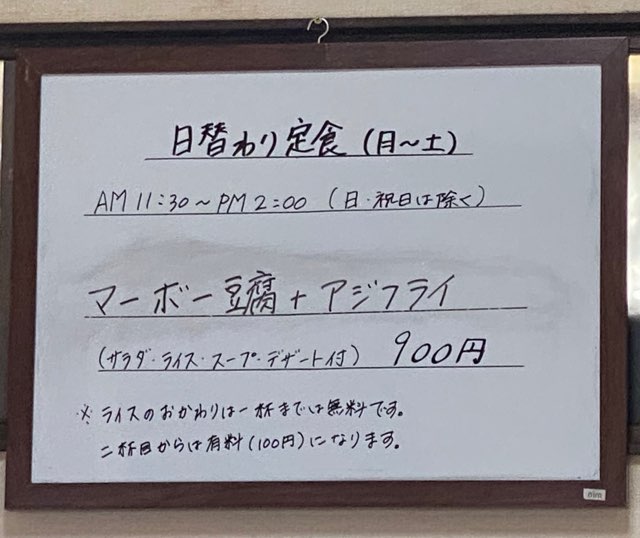 日替わり定食(月〜土)
AM11:30〜PM2:00 (日・祝日は除く)
マーボー豆腐+アジフライ
(サラダ・ライス・スープ・デザート付) 900円
※ライスのおかわりは一杯までは無料です。
二杯目からは有料(100円)になります。